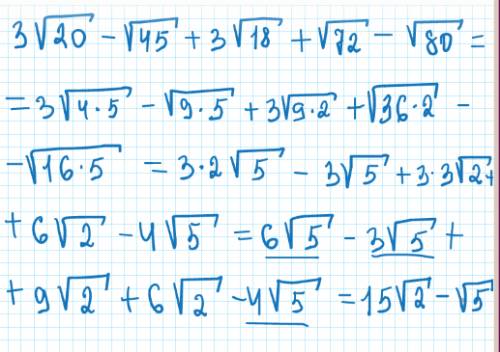 3√20 - √45 + 3√18 + √72 - √80 =
= 3√4·5 - √9·5 + 3√9·2 + √36·2 -
- √16·5 = 3·2√5 - 3√5 + 3·3√2 +
+ 6√2 - 4√5 = 6√5 - 3√5 +
+ 9√2 + 6√2 - 4√5 = 15√2 - √5